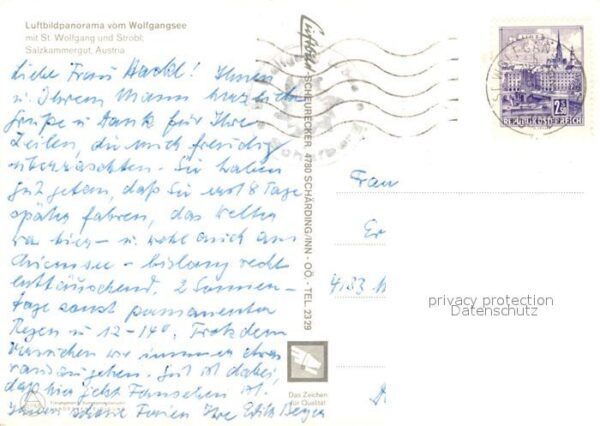 Luftbildpanorama vom Wolfgangsee
mit St. Wolfgang und Strobl;
Salzkammergut, Austria
Liebe Frau Hackl! Ihnen
u. Ihrem Mann herzliche
Grüße u. Dank für Ihre
Zeilen, die mich freudig
überraschten. Sie haben
gut getan, daß Sie erst 8 Tage
später fahren, das Wetter
war hier – u. wohl auch am
Chiemsee – bislang recht
enttäuschend. 2 Sonnen-
tage sonst permanenter
Regen u. 12-14°. Trotzdem
versuchen wir immer etwas
rauszugehen. Gut ist dabei,
daß hier jetzt Fernsehen ist.
Ihnen schöne Ferien Ihre Edith Berger
SCHEURECKER 4780 SCHÄRDING/INN - OÖ. - TEL 2329
Das Zeichen
für Qualität
2.50
REPUBLIK ÖSTERREICH
Frau
Er
privacy protection
Datenschutz